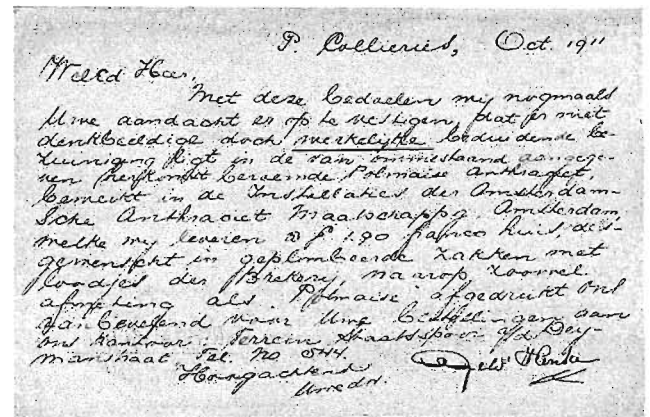 P. Collieries, Oct. 1911
WelEd Heer,
Met deze bedoelen wij nogmaals
Uwe aandacht er op te vestigen, dat er niet
denkbeeldige doch werkelijke beduidende be-
zuiniging ligt in de van ommestaand aangege-
ven herkomst beroemde Polmaise Anthraciet,
bewerkt in de Installaties der Amsterdam-
sche Anthraciet Maatschappij Amsterdam,
welke wij leveren à f 1.90 franco huis, des-
gewenscht in geplombeerde zakken met
loodjes der Brekerij, waarop zoowel
afmeting als "Polmaise" afgedrukt. Ons
aanbevelend voor Uwe bestellingen aan
ons Kantoor: Terrein Staatsspoor a/d Dey-
manstraat Tel. No 544.
Hoogachtend